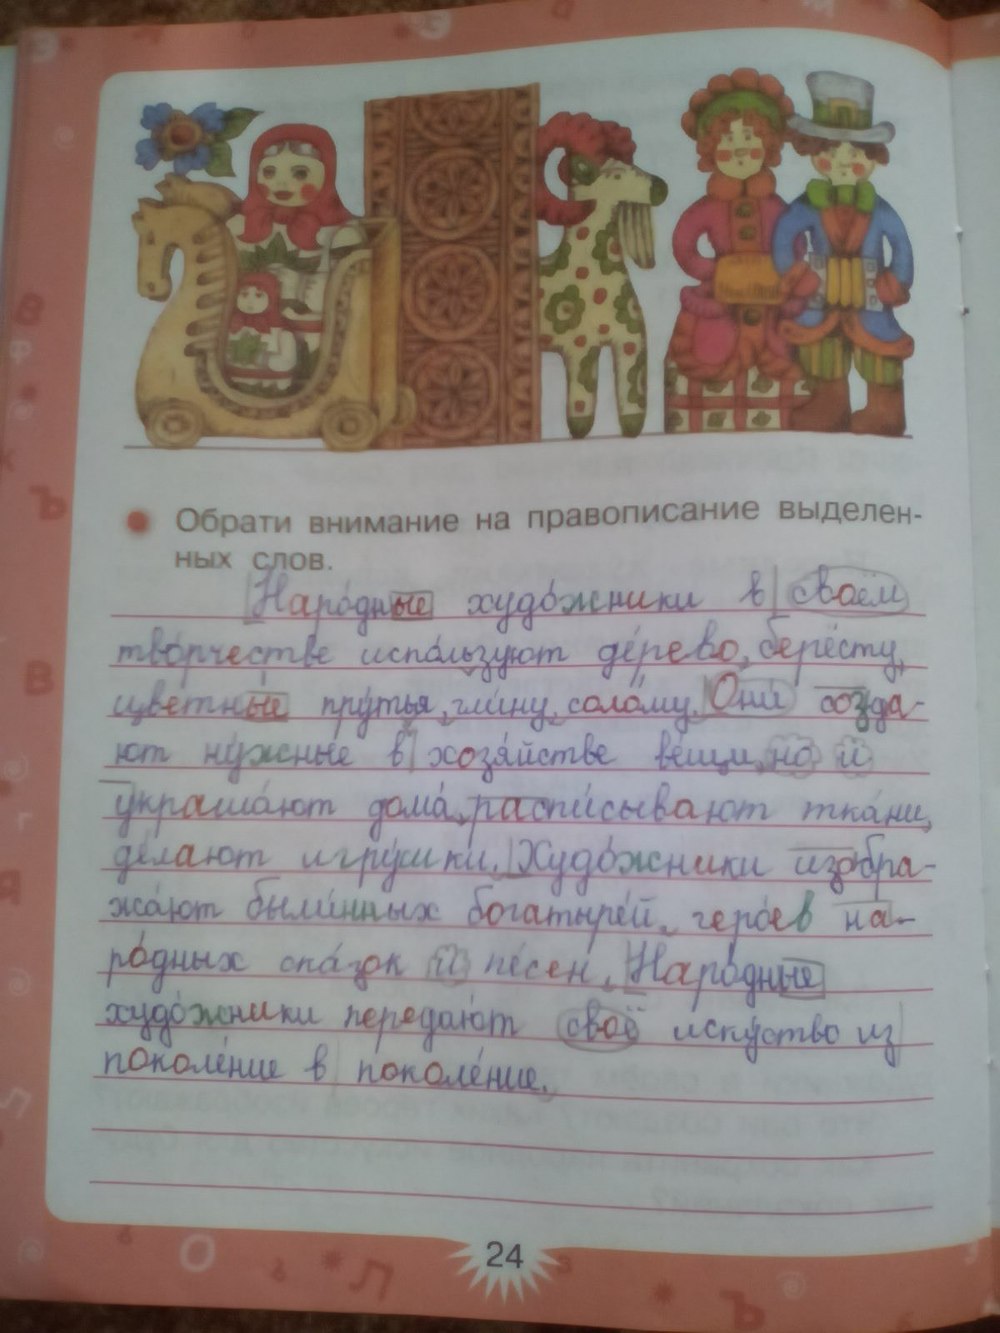 Обрати внимание на правописание выделен-
ных слов.
Наро́дные худо́жники в своём
тво́рчестве испо́льзуют де́рево, берёсту,
цветны́е пру́тья, гли́ну, соло́му. Они́ созда-
ют ну́жные в хозя́йстве ве́щи, но и
украша́ют дома́, распи́сывают тка́ни,
де́лают игру́шки. Худо́жники изобра-
жа́ют были́нных богатыре́й, геро́ев на-
ро́дных ска́зок и пе́сен. Наро́дные
худо́жники передаю́т своё иску́ство из
поколе́ние в поколе́ние.
24